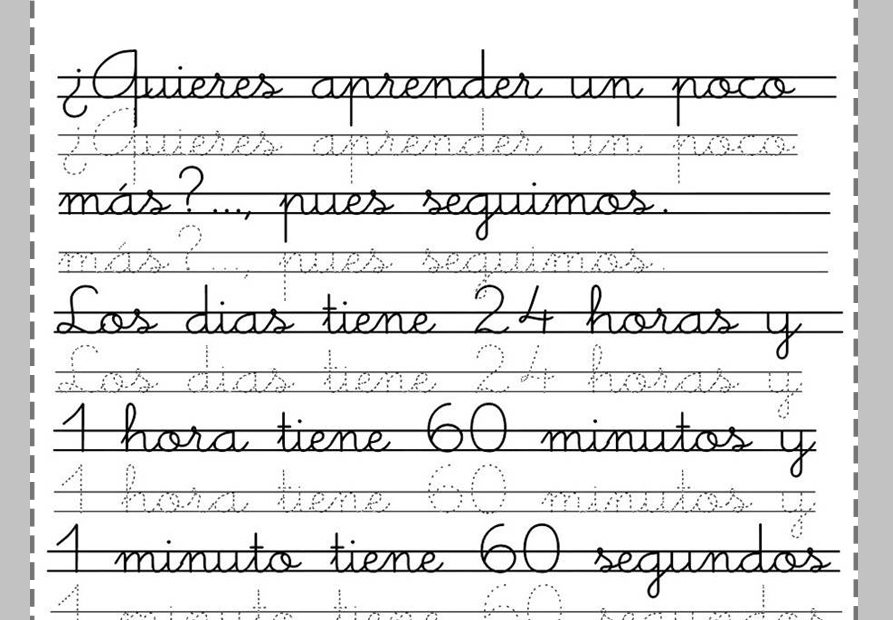 ¿Quieres aprender un poco
¿Quieres aprender un poco
más?..., pues seguimos.
más?..., pues seguimos.
Los dias tiene 24 horas y
Los dias tiene 24 horas y
1 hora tiene 60 minutos y
1 hora tiene 60 minutos y
1 minuto tiene 60 segundos
1 minuto tiene 60 segundos